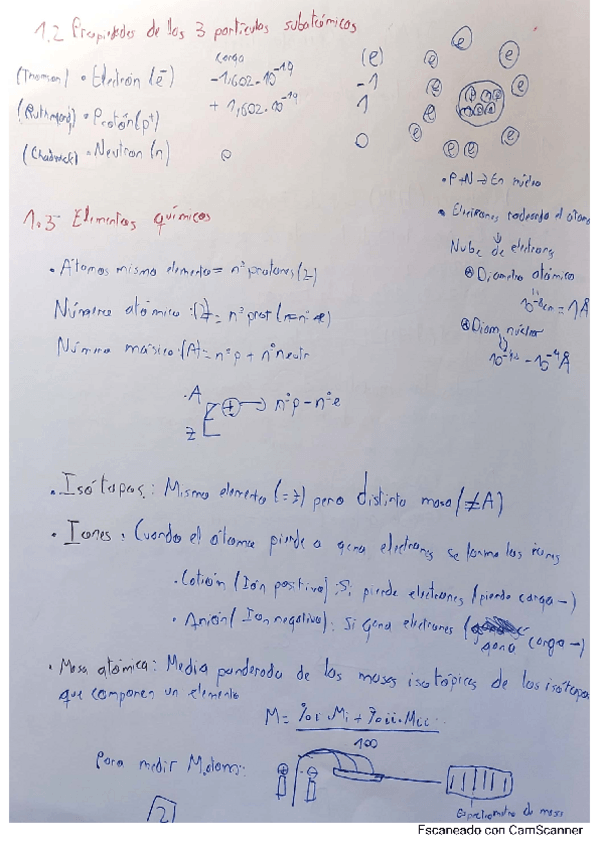 1.2 Propiedades de las 3 partículas subatómicas
carga (e)
(Thomson) • Electrón (e⁻) -1,602·10⁻¹⁹ -1
(Rutherford) • Protón (p⁺) + 1,602·10⁻¹⁹ 1
(Chadwick) • Neutron (n) 0 0
e e e e e e e e e e
• P+N → En núcleo
• Electrones rodeando el átomo
Nube de electrons
Diametro atómico
10⁻⁸cm = 1Å
Diam. nuclear
1.3 Elementos químicos
• Átomos mismo elemento = nº protones (z)
Número atómico: (Z) = nº prot
Número másico: (A) = nº p + nº neutr
A
Z
+ → nº p - nº e
• Isótopos: Mismo elemento (= z) pero distinta masa (≠A)
• Iones: Cuando el átomo pierde o gana electrones se forma los iones
• Catión (Ión positivo): Si pierde electrones (pierde carga -)
• Anión (Ion negativo): Si gana electrones (gana carga -)
• Masa atómica: Media ponderada de las masas isotópicas de los isótopos
que componen un elemento
M = %i · Mi + %ii · Mii
100
Para medir M.atom:
Espectrómetro de masa
2
Escaneado con CamScanner